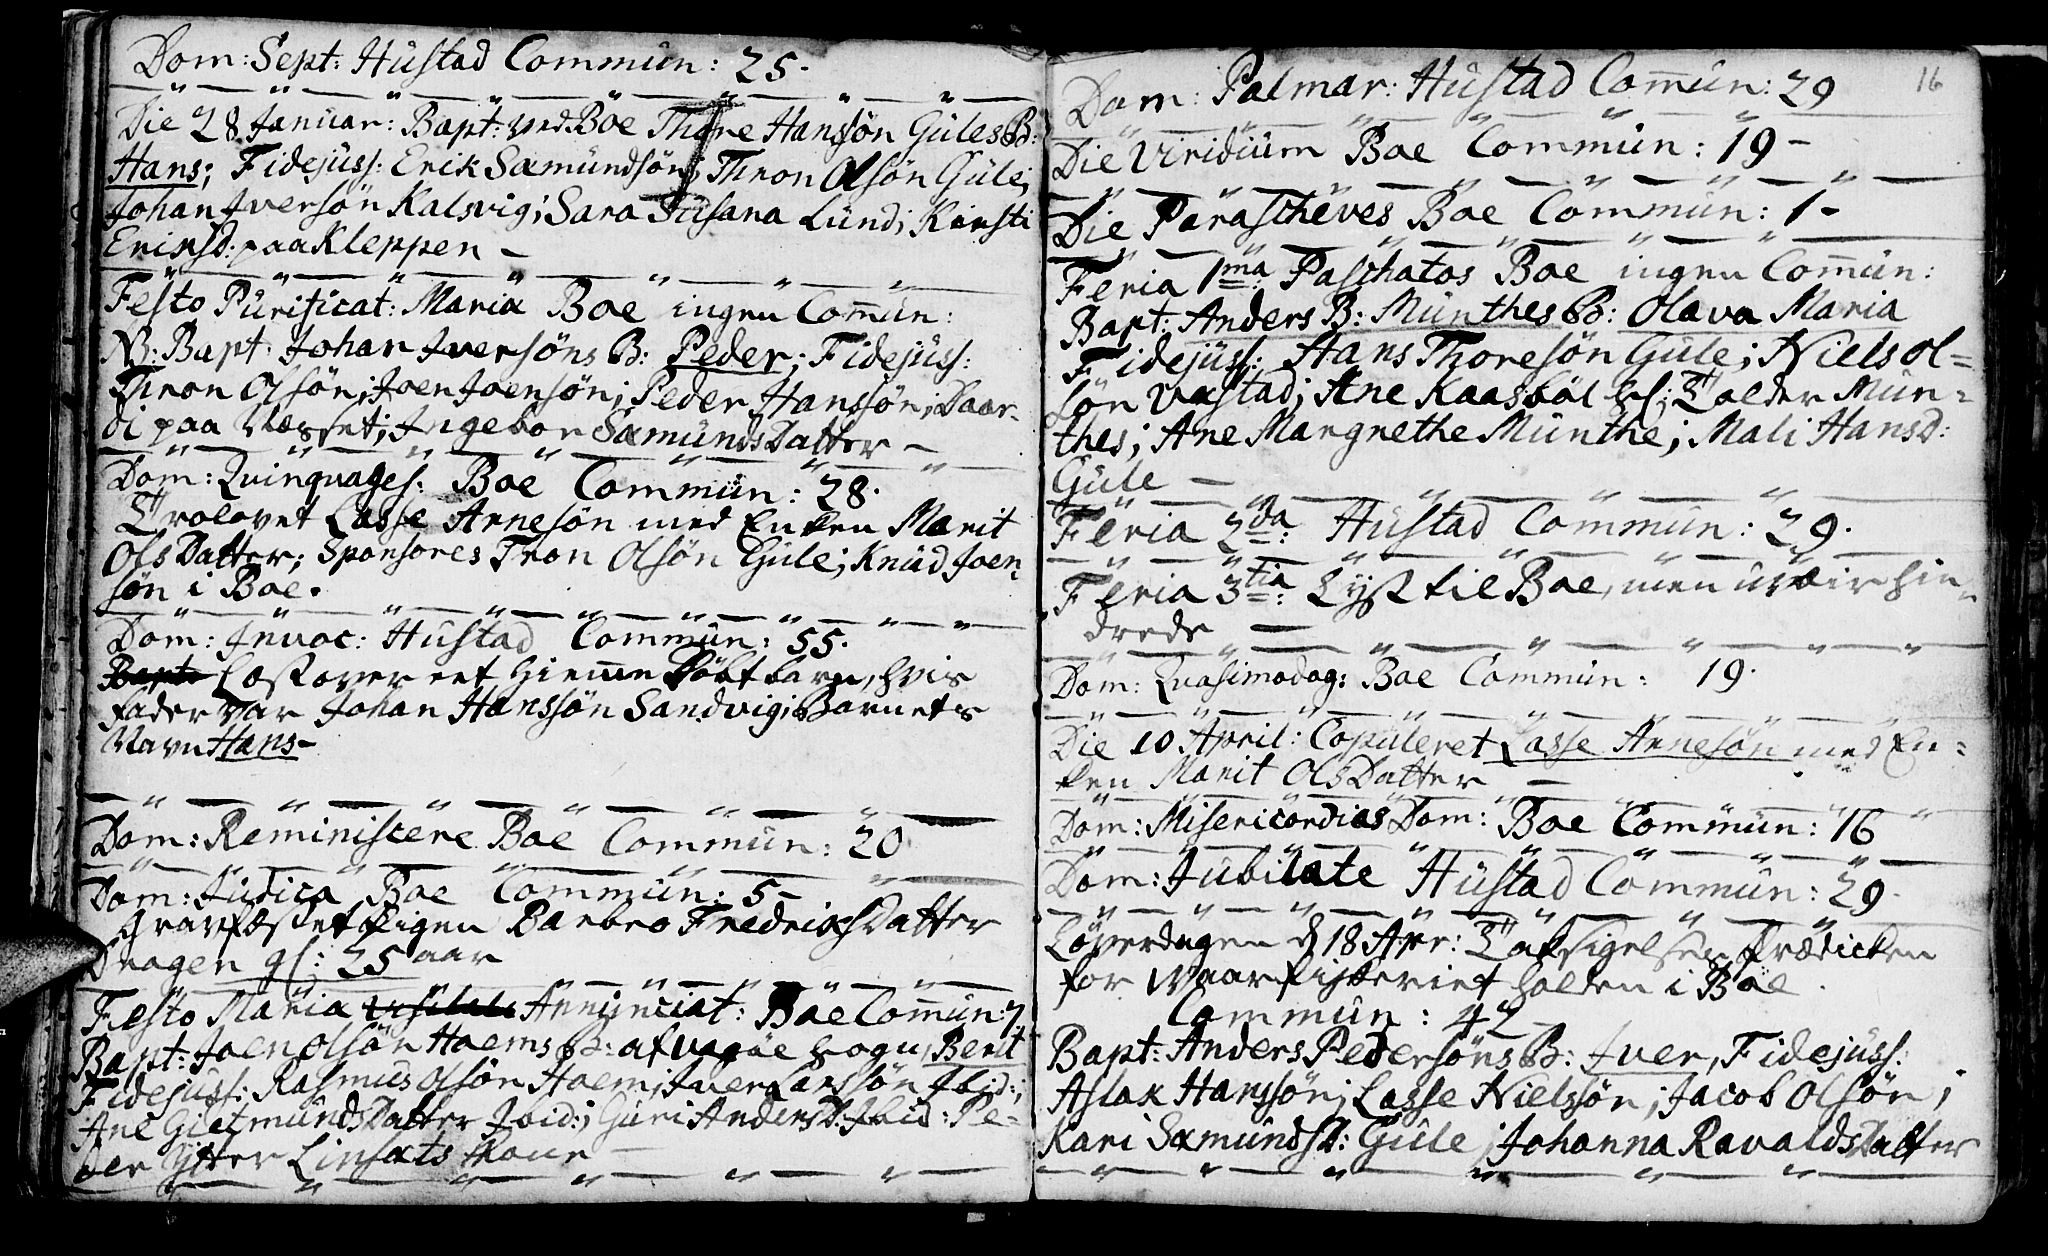 Dom: Sept: Hustad Commun: 25.
Die 28 Januar: Bapt: ved Boe Thore Hansøn Gules B:
Hans; Fidejuss: Erik Sæmundsøn; Thron Olsøn Gule;
Johan Jversøn Kalsvig; Sara Susana Lund; Kirsti
Eriksd: paa Kleppen –
Festo Purificat: Mariæ Boe ingen Com̄un:
NB: Bapt. Johan Jversøns B: Peder; Fidejuss:
Thron Olsøn; Joen Joensøn; Peder Hanssøn; Daar-
di paa Næsset; Ingebor Sæmunds Datter –
Dom: Quinqvages: Boe Commun: 28.
Trolovet Lasse Arnesøn med Enken Marit
Ols Datter; Sponsores Tron Olsøn Gule; Knud Joen-
søn i Boe.
Dom: Invoc: Hustad Commun: 55.
Bapt: Læst over eet hiemme Døbt barn, hvis
fader var Johan Hanssøn Sandvig; Barnets
Navn Hans –
Dom: Reminiscere Boe Commun: 20
Dom: Judica Boe Commun: 5 –
Gravfæstet Pigen Barbro Fredrichs Datter
Dragen gl: 25 aar
Festo Maria Annunciat: Boe Com̄un: 7
Bapt: Joen Olsøn Haems B: af Vaagøe Sogn, Berit
Fidejuss: Rasmus Olsøn Haem; Jver Larssøn Ibid:;
Ane Gietmunds Datter Ibid:; Guri Anders D: Ibid: Pe-
der Linsæts Kone –
16
Dom: Palmar: Hustad Com̄un: 29
Die Viridium Boe Commun: 19 –
Die Parascheves Boe Commun: 1 –
Feria 1ma: Paschatos Boe ingen Com̄un:
Bapt: Anders B: Munthes B: Olava Maria
Fidejuss: Hans Thoresøn Gule; Niels Ol=
søn Vastad; Ane Kaasbøl sl: Tolder Mun=
thes; Ane Margrethe Munthe; Mali Hansd:
Gule –
Feria 2da: Hustad Commun: 29.
Feria 3tia: Lyst til Boe, men uveir hin-
drede –
Dom: Quasimodog: Boe Commun: 19.
Die 10 April: Copuleret Lasse Arnesøn med En=
ken Marit Ols Datter –
Dom: Misericordias Dom: Boe Commun: 16
Dom: Jubilate Hustad Commun: 29.
Løverdagen d 18 Apr: Taksigelses Prædicken
for Vaarfiskeriet holden i Boe.
Commun: 42 –
Bapt: Anders Pedersøns B: Iver, Fidejuss:
Aslak Hanssøn; Lasse Nielssøn; Jacob Olsøn;
Kari Sæmundsd: Gule; Johanna Ravalds Datter